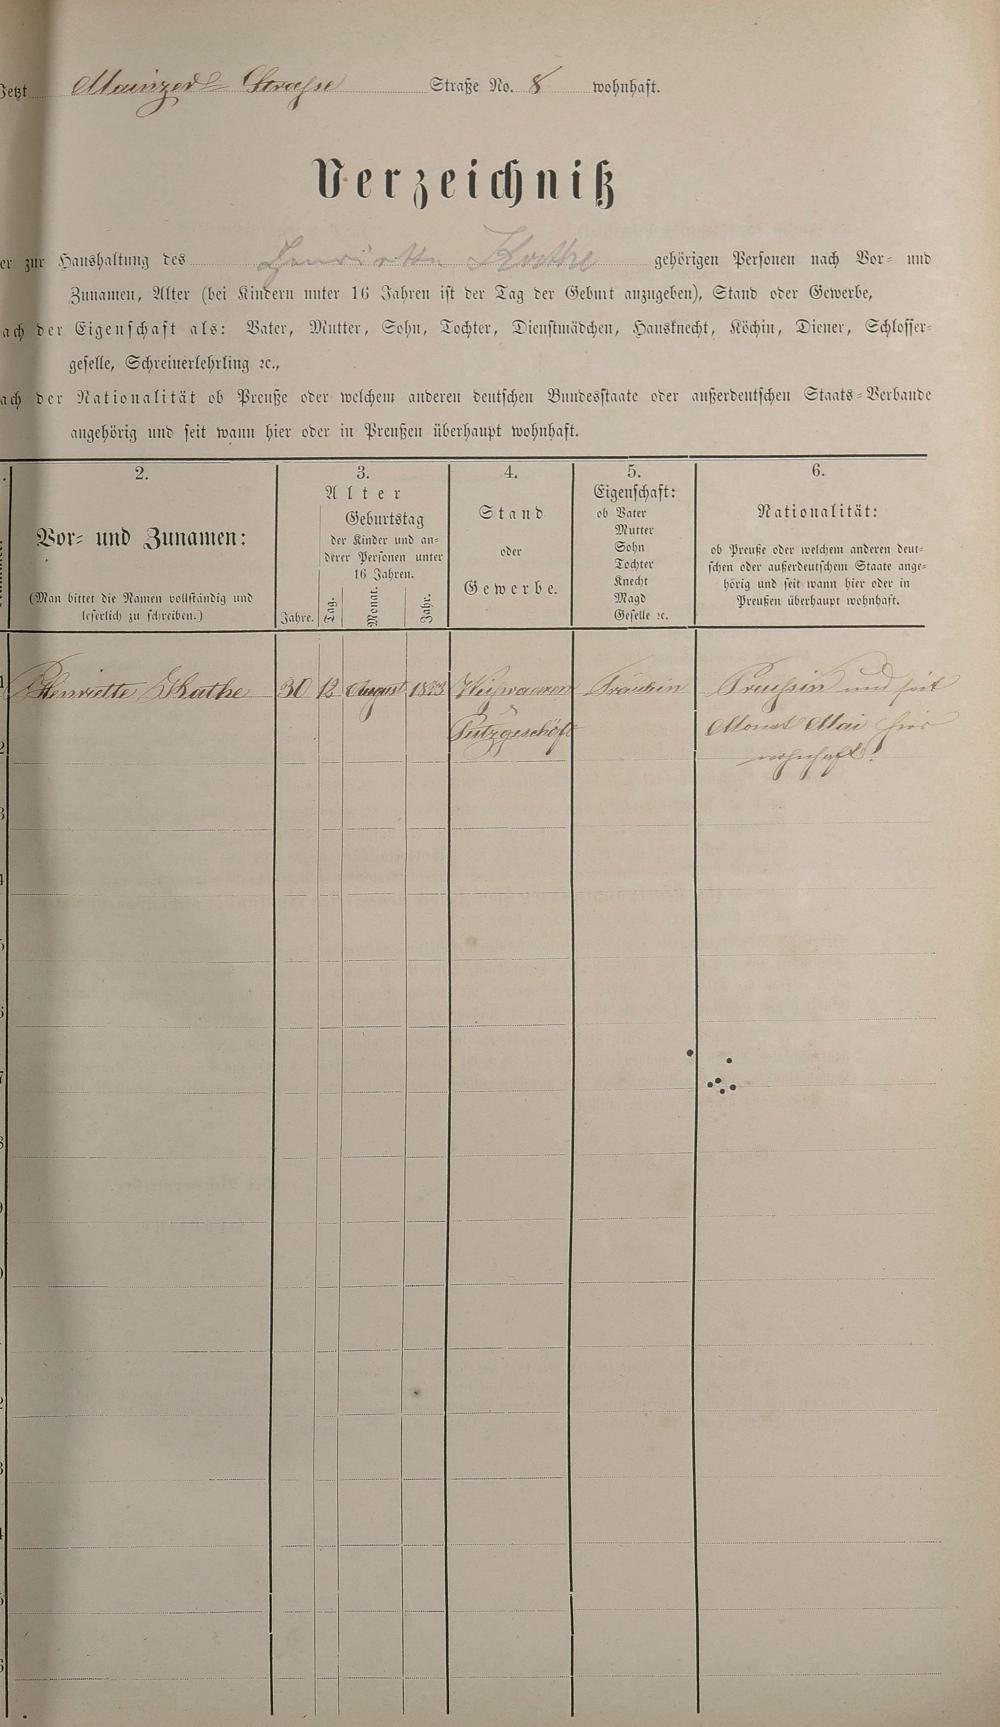 Jetzt Mainzer Strasse Straße No. 8 wohnhaft.
Verzeichniß
er zur Haushaltung des Henriette Kathe gehörigen Personen nach Vor- und
Zunamen, Alter (bei Kindern unter 16 Jahren ist der Tag der Geburt anzugeben), Stand oder Gewerbe,
ach der Eigenschaft als: Vater, Mutter, Sohn, Tochter, Dienstmädchen, Hausknecht, Köchin, Diener, Schlosser-
geselle, Schreinerlehrling ꝛc.,
ach der Nationalität ob Preuße oder welchem anderen deutschen Bundesstaate oder außerdeutschen Staats-Verbande
angehörig und seit wann hier oder in Preußen überhaupt wohnhaft.
2.
Vor- und Zunamen:
(Man bittet die Namen vollständig und
leserlich zu schreiben.)
3.
Alter
Geburtstag
der Kinder und an-
derer Personen unter
16 Jahren.
Jahre. Tag. Monat. Jahr.
4.
Stand
oder
Gewerbe.
5.
Eigenschaft:
ob Vater
Mutter
Sohn
Tochter
Knecht
Magd
Geselle ꝛc.
6.
Nationalität:
ob Preuße oder welchem anderen deut-
schen oder außerdeutschem Staate ange-
hörig und seit wann hier oder in
Preußen überhaupt wohnhaft.
1 Henriette Kathe 30 12 August Weißwaaren Fräulein Preußin und seit
Putzgeschäft Monat Mai hier
2 wohnhaft!
3
4
5
6
7
8
9
0
2
3
4
5
6